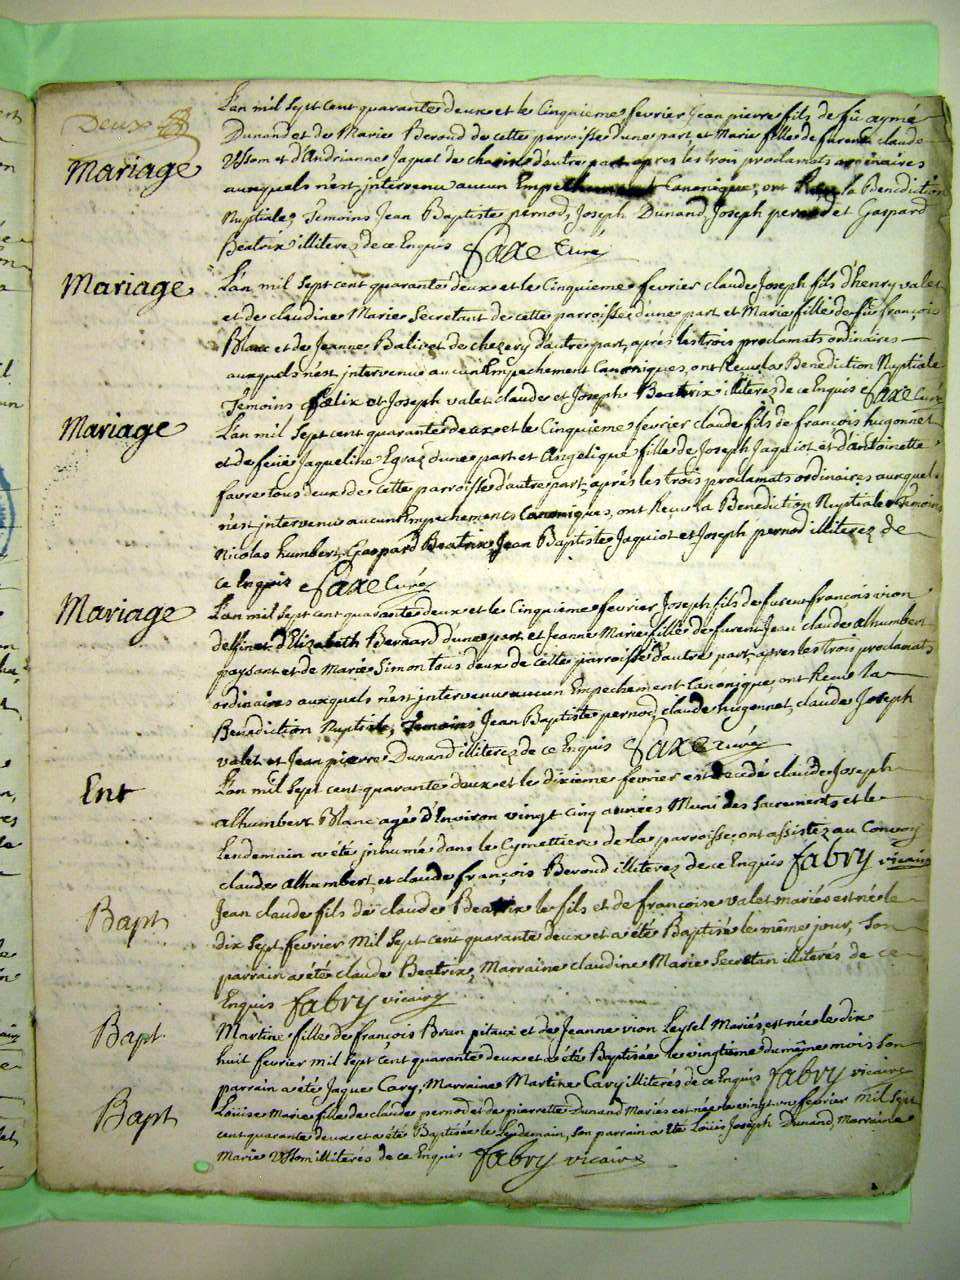 Deux
L'an mil sept cent quarante deux et le Cinquieme fevrier Jean pierre fils de fù aymé
Dunand et de Marie Beroud de cette parroisse d'une part et Marie fille de furent claude
et d'Andrianne Jaquet de d'autre part apres les trois proclamats ordinaires
Mariage
auxquels n'est jntervenu aucun Canonique, ont la Benediction
Nuptiale, Temoins Jean Baptiste pernod, Joseph Dunand, Joseph pernod et Gaspard
Beatrix illiterez de ce Enquis Saxe Curé
Mariage
L'an mil sept cent quarante deux et le Cinquieme fevrier claude Joseph fils d'henry valet
et de claudine Marie Secretant de cette parroisse d'une part et Marie fille de fù françois
Blanc et de Jeanne Balivet de chezery d'autre part, aprés les trois proclamats ordinaires
auxquels n'est jntervenu aucun Empechement Canoniques, ont Reçu la Benediction Nuptiale
Temoins fœlix et Joseph valet, claude et Joseph Beatrix illiterez de ce Enquis Saxe Curé
Mariage
L'an mil sept cent quarante deux et le Cinquieme fevrier claude fils de françois hugonnet
et de feüe Jaqueline Egraz d'une part et Angelique fille de Joseph Jaquiot et d'antoinette
favre tous deux de cette parroisse d'autre part, aprés les trois proclamats ordinaires auxquels
n'est jntervenu aucun Empechements Canoniques, ont Reçu la Benediction Nuptiale Temoins
Nicolas humbert, Gaspard Beatrix, Jean Baptiste Jaquiot et Joseph pernod illiterez de
ce Enquis Saxe Curé
Mariage
L'an mil sept cent quarante deux et le Cinquieme fevrier Joseph fils de furent francois vion
delfin et d'Elizabeth Bernard d'une part et Jeanne Marie fille de furent Jean claude alhumbert
paysant et de Marie Simon tous deux de cette parroisse d'autre part, apres les trois proclamats
ordinaires auxquels n'est jntervenu aucun Empechement Canonique, ont Reçu la
Benediction Nuptiale, Temoins Jean Baptiste pernod, claude hugonnet, claude Joseph
valet et Jean pierre Dunand illiterez de ce Enquis Saxe curé
Ent
L'an mil sept cent quarante deux et le dixieme fevrier est decedé claude Joseph
alhumbert Blanc agé d'Environ vingt cinq années Muni des Sacrements et le
Lendemain a été jnhumé dans le Cymettiere de la parroisse, ont assistez au Convoy
claude alhumbert, et claude françois Beroud illiterez de ce Enquis fabry vicaire
Bapt
Jean claude fils de claude Beatrix le fils et de francoise valet mariés est née le
dix sept fevrier Mil sept cent quarante deux et a été Baptisé le même jour, son
parrain a été claude Beatrix, Marraine claudine Marie Secretan illiterés de ce
Enquis fabry vicaire
Bapt
Martine fille de françois Brun pitaux et de Jeanne vion Leysel Mariés, est née le dix
huit fevrier mil sept cent quarante deux et a été Baptisée le vingtieme du même mois son
parrain a été Jaque Cary, Marraine Martine Cary illiterés de ce Enquis fabry vicaire
Bapt
Loüise Marie fille de claude pernod et de pierrette Dunand Mariés est née le vingt un fevrier mil sept
cent quarante deux et a été Baptisée le Lendemain, son parrain a été Loüis Joseph Dunand, Marraine
Marie illiterés de ce Enquis fabry vicaire